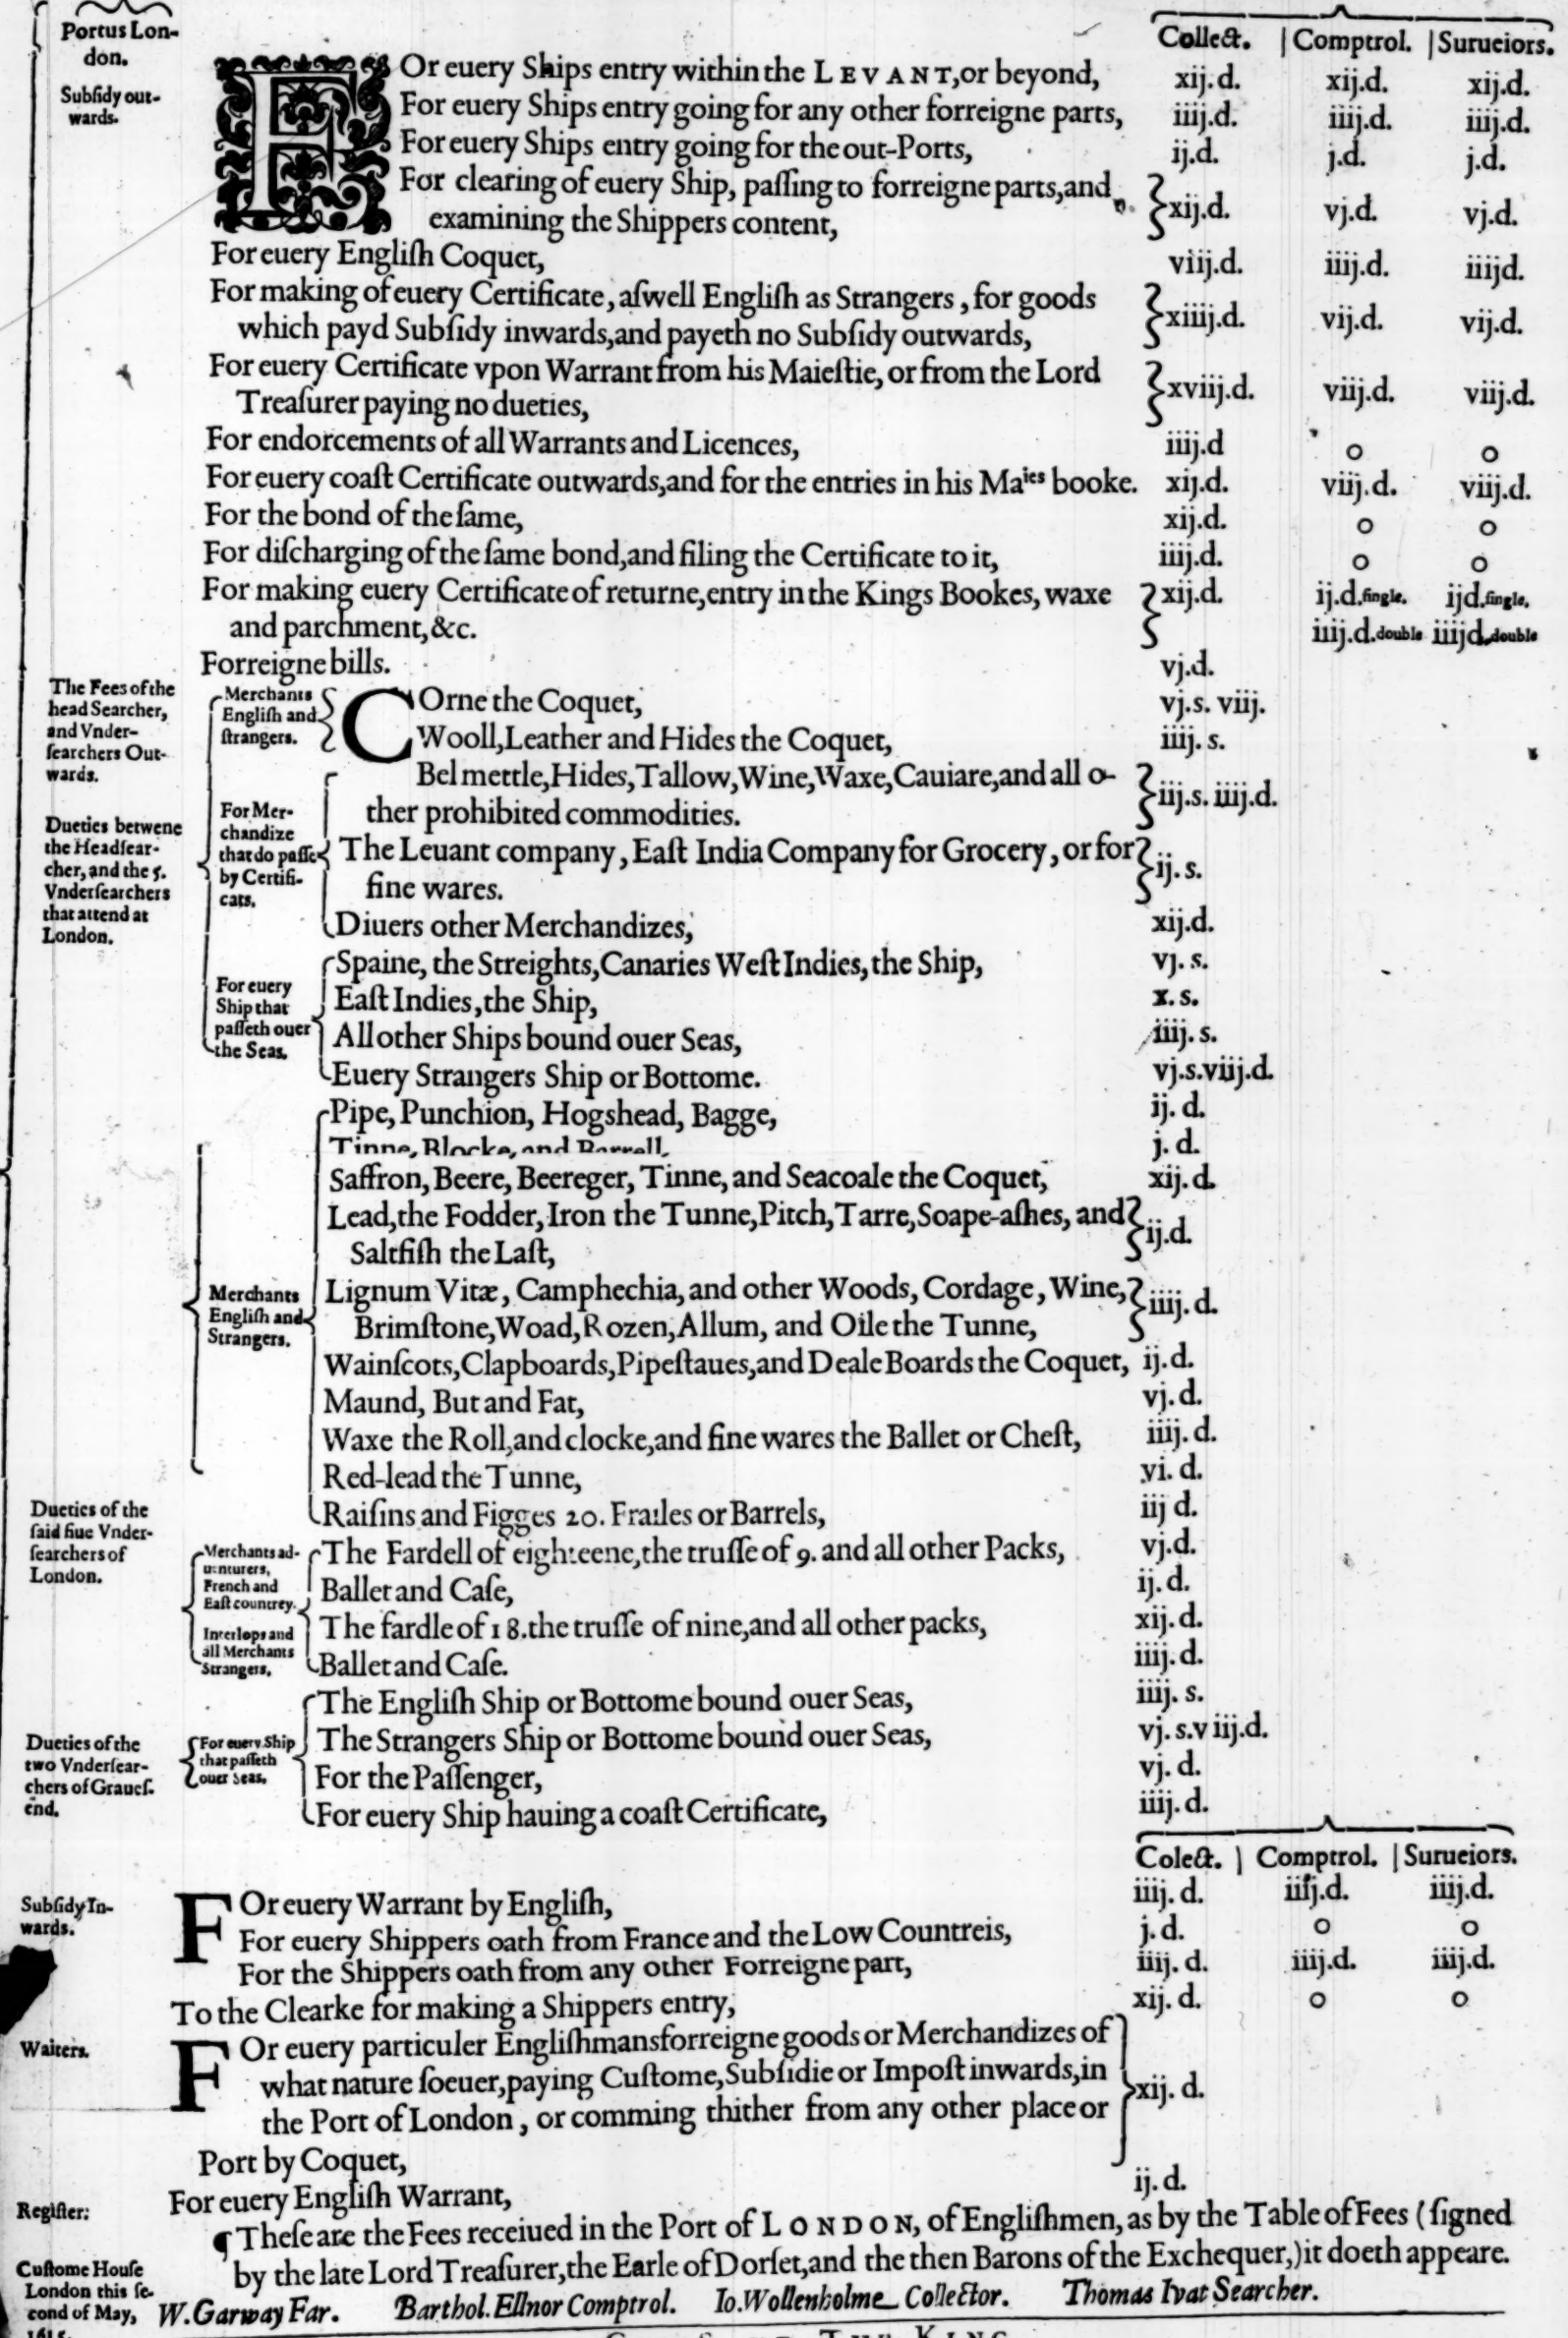 Portus Lon-
don.
Subsidy out-
wards.
Collect. | Comptrol. | Surueiors.
FOr euery Ships entry within the LEVANT, or beyond, xij.d. xij.d. xij.d.
For euery Ships entry going for any other forreigne parts, iiij.d. iiij.d. iiij.d.
For euery Ships entry going for the out-Ports, ij.d. j.d. j.d.
For clearing of euery Ship, paſſing to forreigne parts, and
examining the Shippers content, xij.d. vj.d. vj.d.
For euery Engliſh Coquet, viij.d. iiij.d. iiijd.
For making of euery Certificate, aſwell Engliſh as Strangers, for goods
which payd Subſidy inwards, and payeth no Subſidy outwards, xiiij.d. vij.d. vij.d.
For euery Certificate vpon Warrant from his Maieſtie, or from the Lord
Treaſurer paying no dueties, xviij.d. viij.d. viij.d.
For endorcements of all Warrants and Licences, iiij.d o o
For euery coaſt Certificate outwards, and for the entries in his Maies booke. xij.d. viij.d. viij.d.
For the bond of the ſame, xij.d. o o
For diſcharging of the ſame bond, and filing the Certificate to it, iiij.d. o o
For making euery Certificate of returne, entry in the Kings Bookes, waxe xij.d. ij.d.ſingle. ijd.ſingle.
and parchment, &c. iiij.d.double iiijd.double
Forreigne bills. vj.d.
The Fees of the
head Searcher,
and Vnder-
ſearchers Out-
wards.
Merchants
Engliſh and
ſtrangers.
COrne the Coquet, vj.s. viij.
Wooll, Leather and Hides the Coquet, iiij. s.
Dueties betwene
the Headſear-
cher, and the 5.
Vnderſearchers
that attend at
London.
For Mer-
chandize
that do paſſe
by Certifi-
cats.
Bel mettle, Hides, Tallow, Wine, Waxe, Cauiare, and all o-
ther prohibited commodities. iij.s. iiij.d.
The Leuant company, Eaſt India Company for Grocery, or for
fine wares. ij. s.
Diuers other Merchandizes, xij.d.
For euery
Ship that
paſſeth ouer
the Seas.
Spaine, the Streights, Canaries Weſt Indies, the Ship, vj. s.
Eaſt Indies, the Ship, x. s.
All other Ships bound ouer Seas, iiij. s.
Euery Strangers Ship or Bottome. vj.s.viij.d.
Merchants
Engliſh and
Strangers.
Pipe, Punchion, Hogshead, Bagge, ij. d.
Tinne, Blocke, and Barrell, j. d.
Saffron, Beere, Beereger, Tinne, and Seacoale the Coquet, xij. d.
Lead, the Fodder, Iron the Tunne, Pitch, Tarre, Soape-aſhes, and
Saltfiſh the Laſt, ij.d.
Lignum Vitæ, Camphechia, and other Woods, Cordage, Wine,
Brimſtone, Woad, Rozen, Allum, and Oile the Tunne, iiij. d.
Wainſcots, Clapboards, Pipeſtaues, and Deale Boards the Coquet, ij.d.
Maund, But and Fat, vj.d.
Waxe the Roll, and clocke, and fine wares the Ballet or Cheſt, iiij. d.
Red-lead the Tunne, vi. d.
Raiſins and Figges 20. Frailes or Barrels, iij d.
Dueties of the
ſaid fiue Vnder-
ſearchers of
London.
Merchants ad-
uenturers,
French and
Eaſt countrey.
The Fardell of eighteene, the truſſe of 9. and all other Packs, vj.d.
Ballet and Caſe, ij. d.
Interlops and
all Merchants
Strangers.
The fardle of 18. the truſſe of nine, and all other packs, xij. d.
Ballet and Caſe. iiij. d.
Dueties of the
two Vnderſear-
chers of Graueſ-
end.
For euery Ship
that paſſeth
ouer Seas.
The Engliſh Ship or Bottome bound ouer Seas, iiij. s.
The Strangers Ship or Bottome bound ouer Seas, vj. s.viij.d.
For the Paſſenger, vj. d.
For euery Ship hauing a coaſt Certificate, iiij. d.
Colect. | Comptrol. | Surueiors.
Subſidy In-
wards.
FOr euery Warrant by Engliſh, iiij. d. iiij.d. iiij.d.
For euery Shippers oath from France and the Low Countreis, j. d. o o
For the Shippers oath from any other Forreigne part, iiij. d. iiij.d. iiij.d.
To the Clearke for making a Shippers entry, xij. d. o o
Waiters.
FOr euery particuler Engliſhmans forreigne goods or Merchandizes of
what nature ſoeuer, paying Cuſtome, Subſidie or Impoſt inwards, in
the Port of London, or comming thither from any other place or xij. d.
Port by Coquet,
Regiſter:
For euery Engliſh Warrant, ij. d.
¶ Theſe are the Fees receiued in the Port of LONDON, of Engliſhmen, as by the Table of Fees (ſigned
by the late Lord Treaſurer, the Earle of Dorſet, and the then Barons of the Exchequer,) it doeth appeare.
Cuſtome Houſe
London this ſe-
cond of May,
1615.
W. Garway Far. Barthol. Ellnor Comptrol. Io. Wollenholme Collector. Thomas Ivat Searcher.